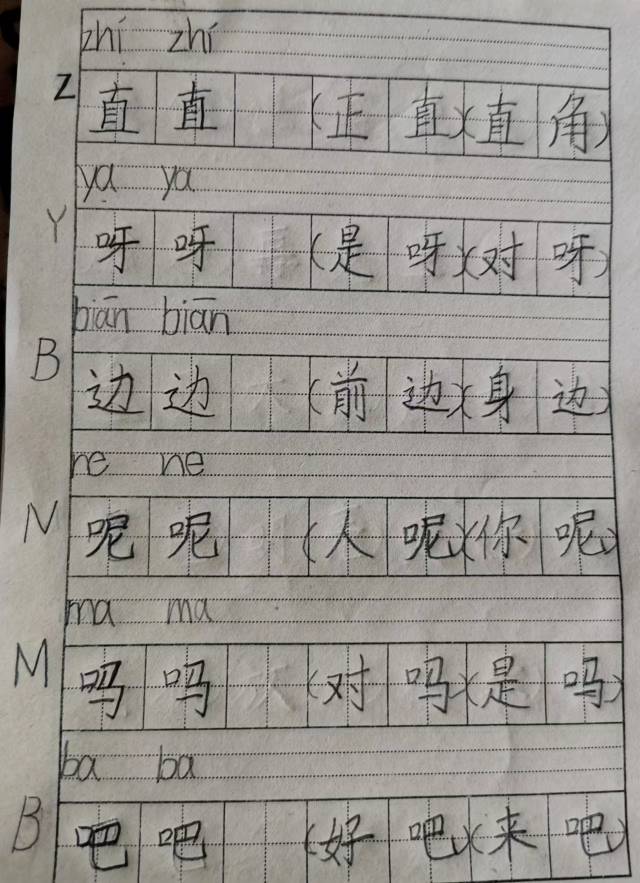 zhí zhí
Z 直 直 (正 直)(直 角)
ya ya
Y 呀 呀 (是 呀)(对 呀)
biān biān
B 边 边 (前 边)(身 边)
ne ne
N 呢 呢 (人 呢)(你 呢)
ma ma
M 吗 吗 (对 吗)(是 吗)
ba ba
B 吧 吧 (好 吧)(来 吧)